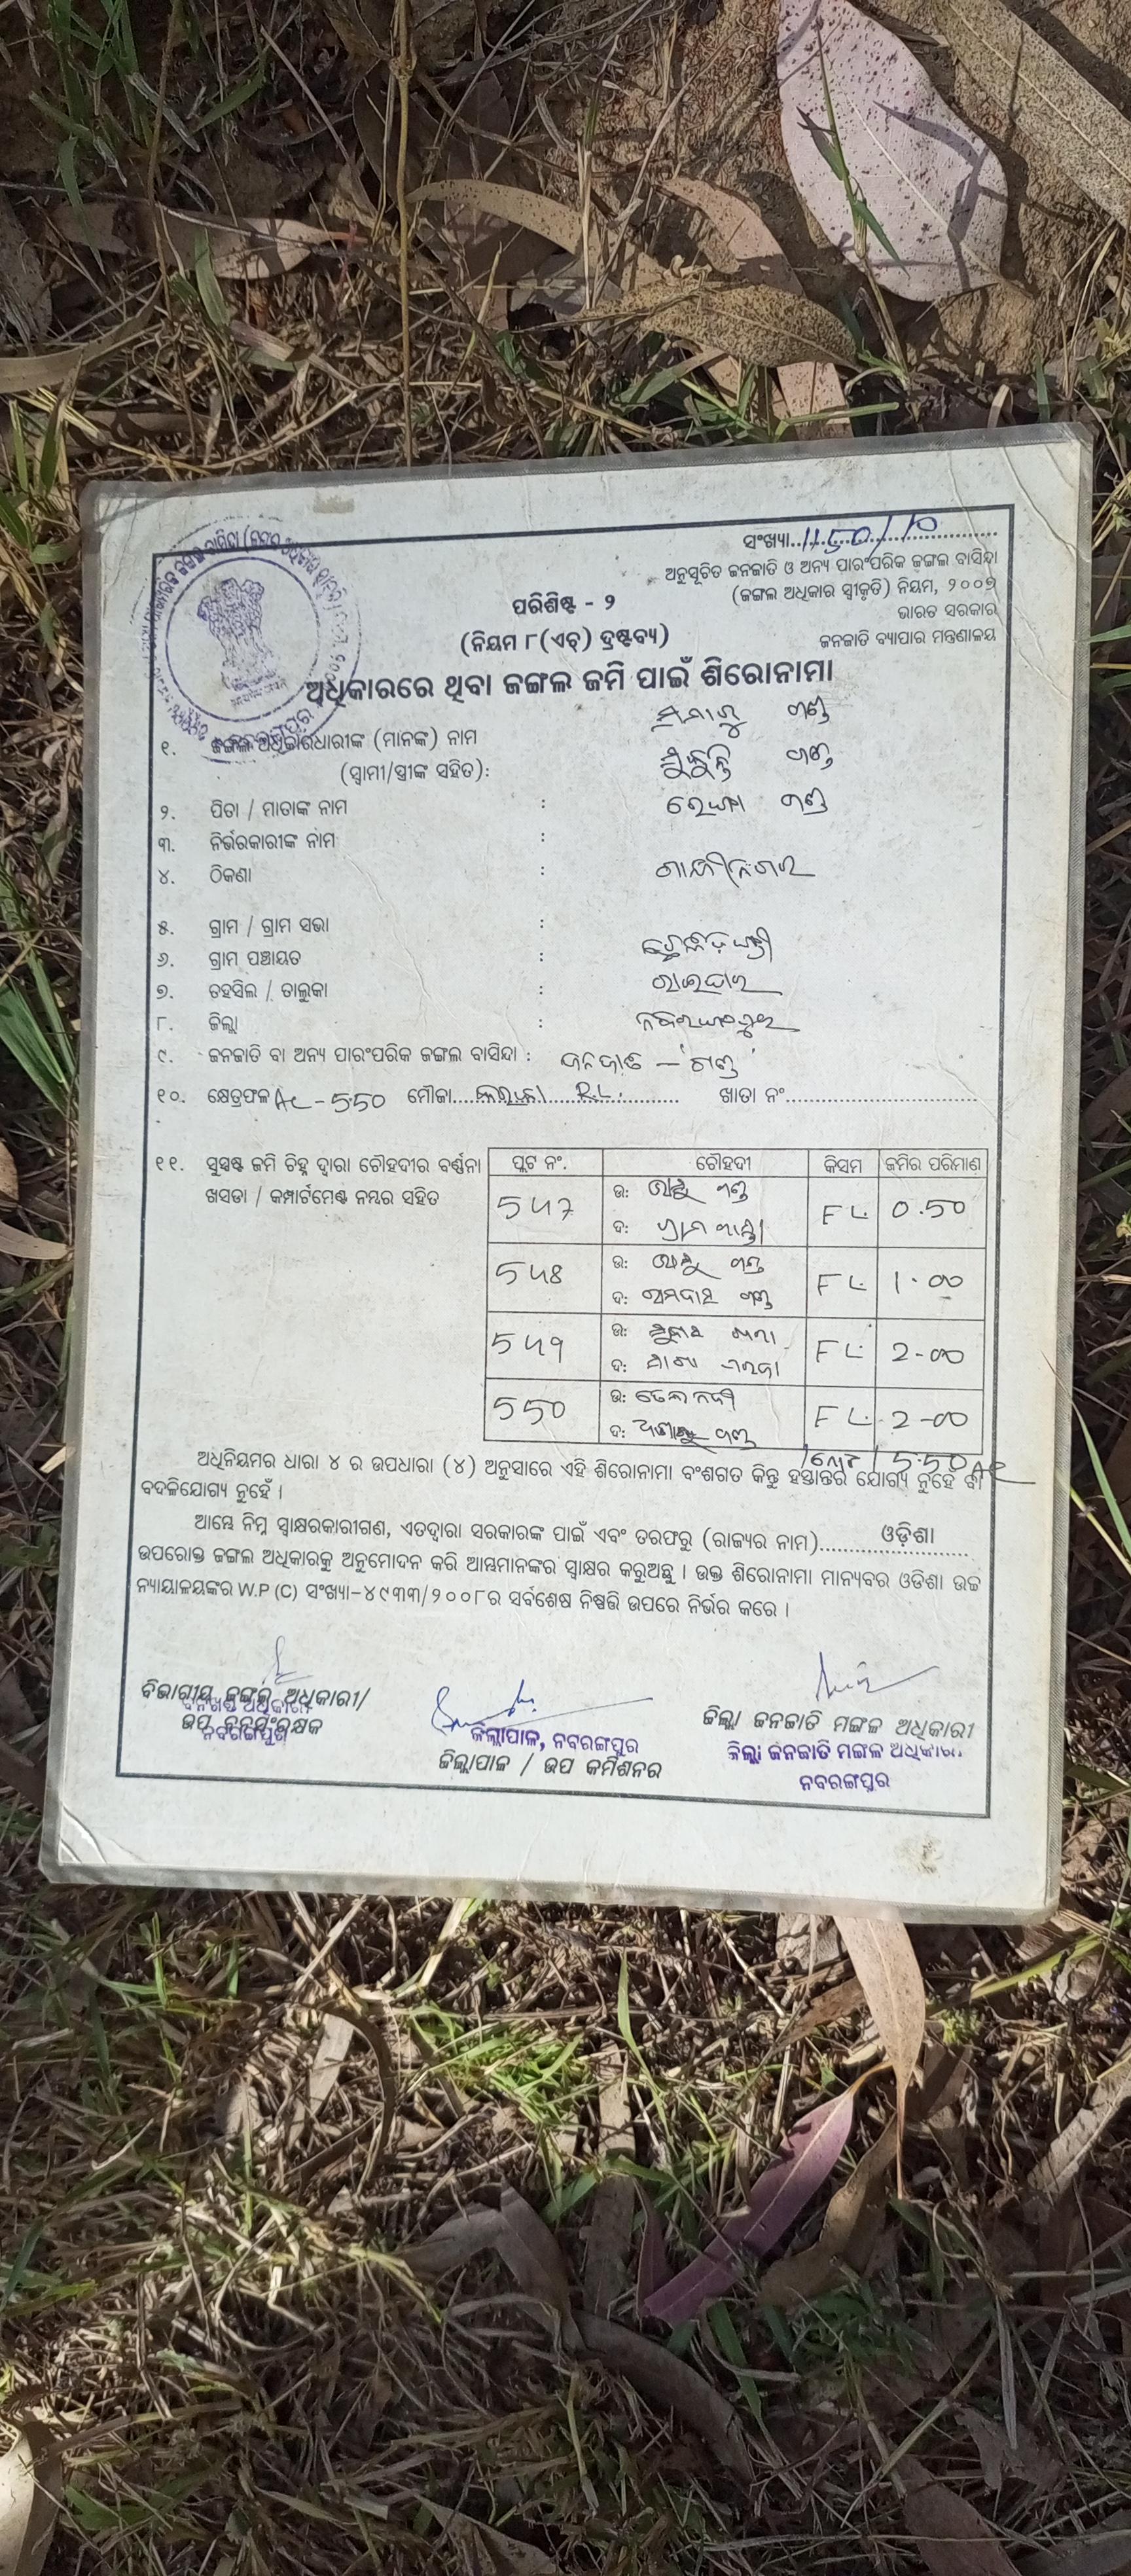 ସଂଖ୍ୟା 1150/10
ଅନୁସୂଚିତ ଜନଜାତି ଓ ଅନ୍ୟ ପାରଂପରିକ ଜଙ୍ଗଲ ବାସିନ୍ଦା
(ଜଙ୍ଗଲ ଅଧିକାର ସ୍ୱୀକୃତି) ନିୟମ, ୨୦୦୭
ଭାରତ ସରକାର
ଜନଜାତି ବ୍ୟାପାର ମନ୍ତ୍ରଣାଳୟ
ପରିଶିଷ୍ଟ - ୨
(ନିୟମ ୮(ଏଚ୍) ଦ୍ରଷ୍ଟବ୍ୟ)
ଅଧିକାରରେ ଥିବା ଜଙ୍ଗଲ ଜମି ପାଇଁ ଶିରୋନାମା
୧. ଜଙ୍ଗଲ ଅଧିକାରଧାରୀଙ୍କ (ମାନଙ୍କ) ନାମ ଗଣ୍ଡ
(ସ୍ୱାମୀ/ସ୍ତ୍ରୀଙ୍କ ସହିତ): ଗଣ୍ଡ
୨. ପିତା / ମାତାଙ୍କ ନାମ : ଗଣ୍ଡ
୩. ନିର୍ଭରକାରୀଙ୍କ ନାମ :
୪. ଠିକଣା : ଗାନ୍ଧୀନଗର
୫. ଗ୍ରାମ / ଗ୍ରାମ ସଭା :
୬. ଗ୍ରାମ ପଞ୍ଚାୟତ :
୭. ତହସିଲ / ତାଲୁକା : ରାଇଘର
୮. ଜିଲ୍ଲା : ନବରଙ୍ଗପୁର
୯. ଜନଜାତି ବା ଅନ୍ୟ ପାରଂପରିକ ଜଙ୍ଗଲ ବାସିନ୍ଦା : ଜନଜାତି – 'ଗଣ୍ଡ'
୧୦. କ୍ଷେତ୍ରଫଳ Ac - 5.50 ମୌଜା R.L. ଖାତା ନଂ
୧୧. ସୁସ୍ପଷ୍ଟ ଜମି ଚିହ୍ନ ଦ୍ୱାରା ଚୌହଦୀର ବର୍ଣ୍ଣନା
ଖସଡା / କମ୍ପାର୍ଟମେଣ୍ଟ ନମ୍ବର ସହିତ
ପ୍ଲଟ ନଂ. ଚୌହଦୀ କିସମ ଜମିର ପରିମାଣ
547 ଉ: ଗଣ୍ଡ FL 0.50
ଦ:
548 ଉ: ଗଣ୍ଡ FL 1.00
ଦ: ଗଣ୍ଡ
549 ଉ: FL 2-00
ଦ:
550 ଉ: FL 2-00
ଦ: ଗଣ୍ଡ
5.50 AC
ଅଧିନିୟମର ଧାରା ୪ ର ଉପଧାରା (୪) ଅନୁସାରେ ଏହି ଶିରୋନାମା ବଂଶଗତ କିନ୍ତୁ ହସ୍ତାନ୍ତର ଯୋଗ୍ୟ ନୁହେଁ ବା
ବଦଳିଯୋଗ୍ୟ ନୁହେଁ ।
ଆମ୍ଭେ ନିମ୍ନ ସ୍ୱାକ୍ଷରକାରୀଗଣ, ଏତଦ୍ୱାରା ସରକାରଙ୍କ ପାଇଁ ଏବଂ ତରଫରୁ (ରାଜ୍ୟର ନାମ) ଓଡ଼ିଶା
ଉପରୋକ୍ତ ଜଙ୍ଗଲ ଅଧିକାରକୁ ଅନୁମୋଦନ କରି ଆମ୍ଭମାନଙ୍କର ସ୍ୱାକ୍ଷର କରୁଅଛୁ । ଉକ୍ତ ଶିରୋନାମା ମାନ୍ୟବର ଓଡିଶା ଉଚ୍ଚ
ନ୍ୟାୟାଳୟଙ୍କର W.P (C) ସଂଖ୍ୟା-୪୯୩୩/୨୦୦୮ର ସର୍ବଶେଷ ନିଷ୍ପତ୍ତି ଉପରେ ନିର୍ଭର କରେ ।
ବିଭାଗୀୟ ଜଙ୍ଗଲ ଅଧିକାରୀ/
ବନଖଣ୍ଡ ଅଧିକାରୀ
ଉପ ବନସଂରକ୍ଷକ
ନବରଙ୍ଗପୁର
ଜିଲ୍ଲାପାଳ, ନବରଙ୍ଗପୁର
ଜିଲ୍ଲାପାଳ / ଉପ କମିଶନର
ଜିଲ୍ଲା ଜନଜାତି ମଙ୍ଗଳ ଅଧିକାରୀ
ଜିଲ୍ଲା ଜନଜାତି ମଙ୍ଗଳ ଅଧିକାରୀ
ନବରଙ୍ଗପୁର